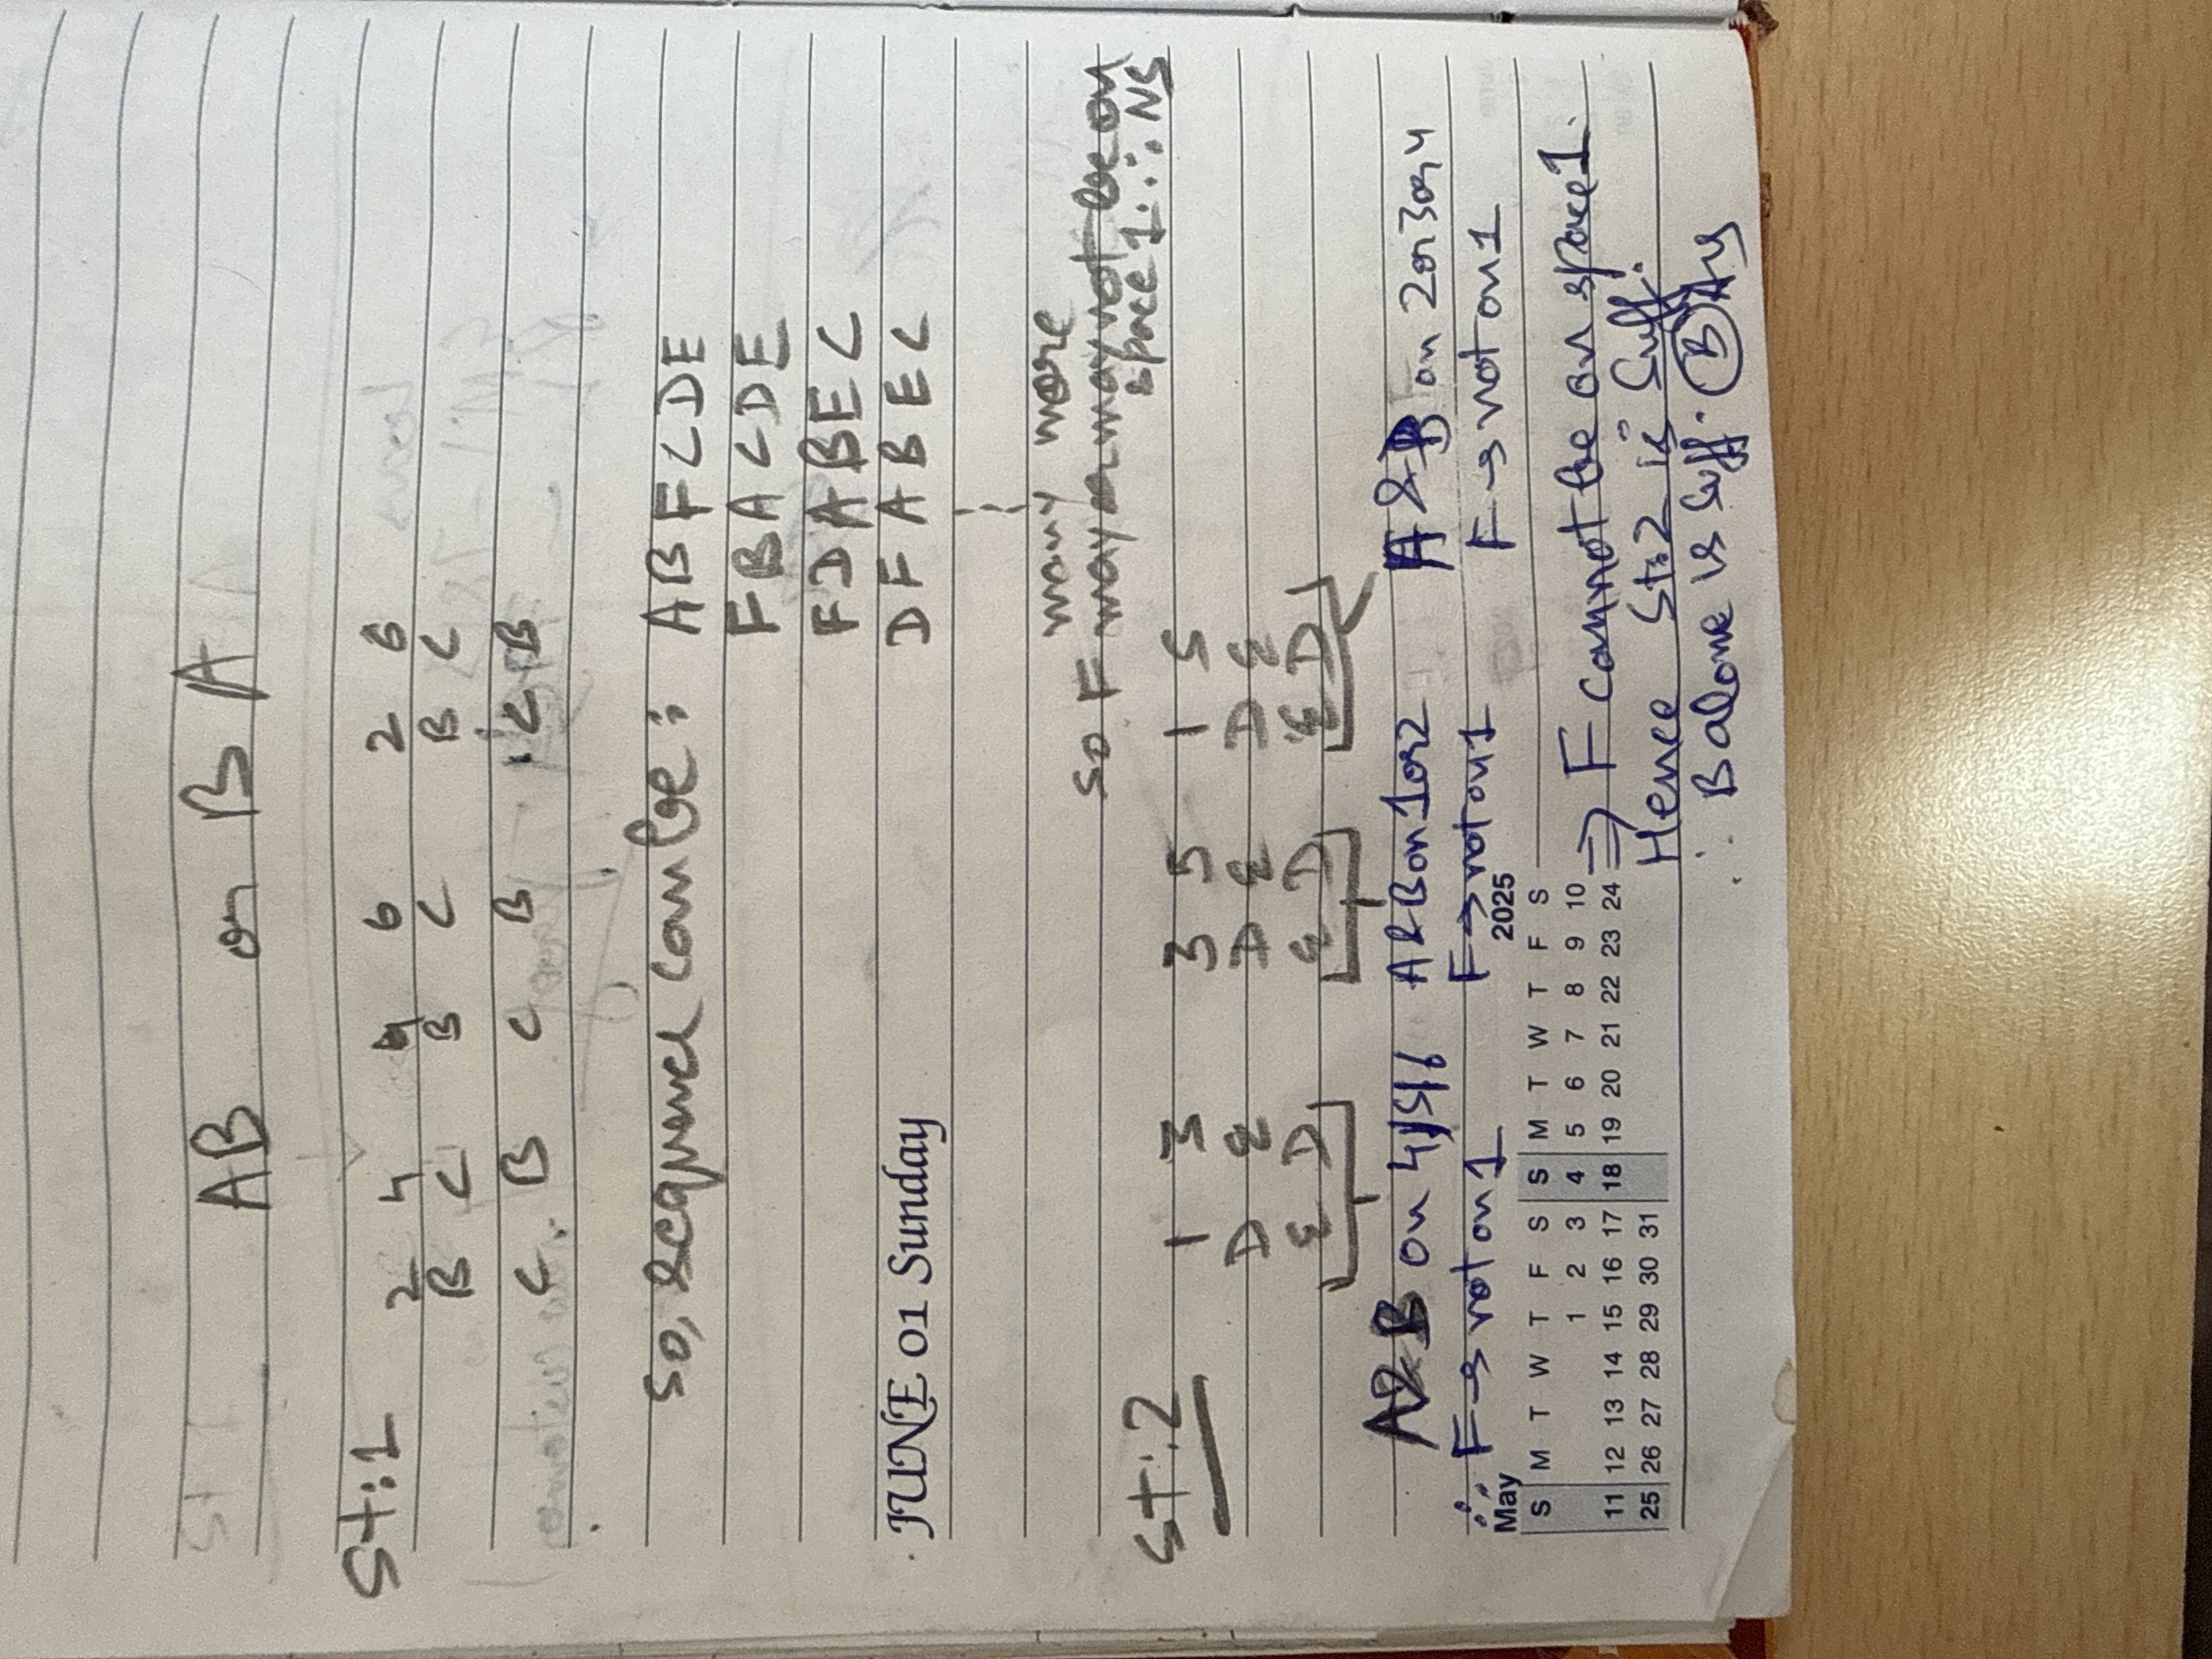 AB or BA
St:1
2 4 4 6 2 6
B C B C B C
C B C B C B
so, sequence can be: ABFCDE
FBACDE
FDABEC
JUNE 01 Sunday DFABEC
many more
so F may or may not be on
space 1. ∴ NS
St.2 1 3 3 5 1 5
D E D E D E
E D E D E D
A&B on 4/5/6 A&B on 1 or 2 A&B on 2 or 3 or 4
∴ F → not on 1 F → not on 1 F → not on 1
May 2025
S M T W T F S M T W T F S S M T W T F S
1 2 3 4 5 6 7 8 9 10
11 12 13 14 15 16 17 18 19 20 21 22 23 24
25 26 27 28 29 30 31
⇒ F cannot be on space 1.
Hence St:2 is Suff.
∴ B alone is Suff. B Ans